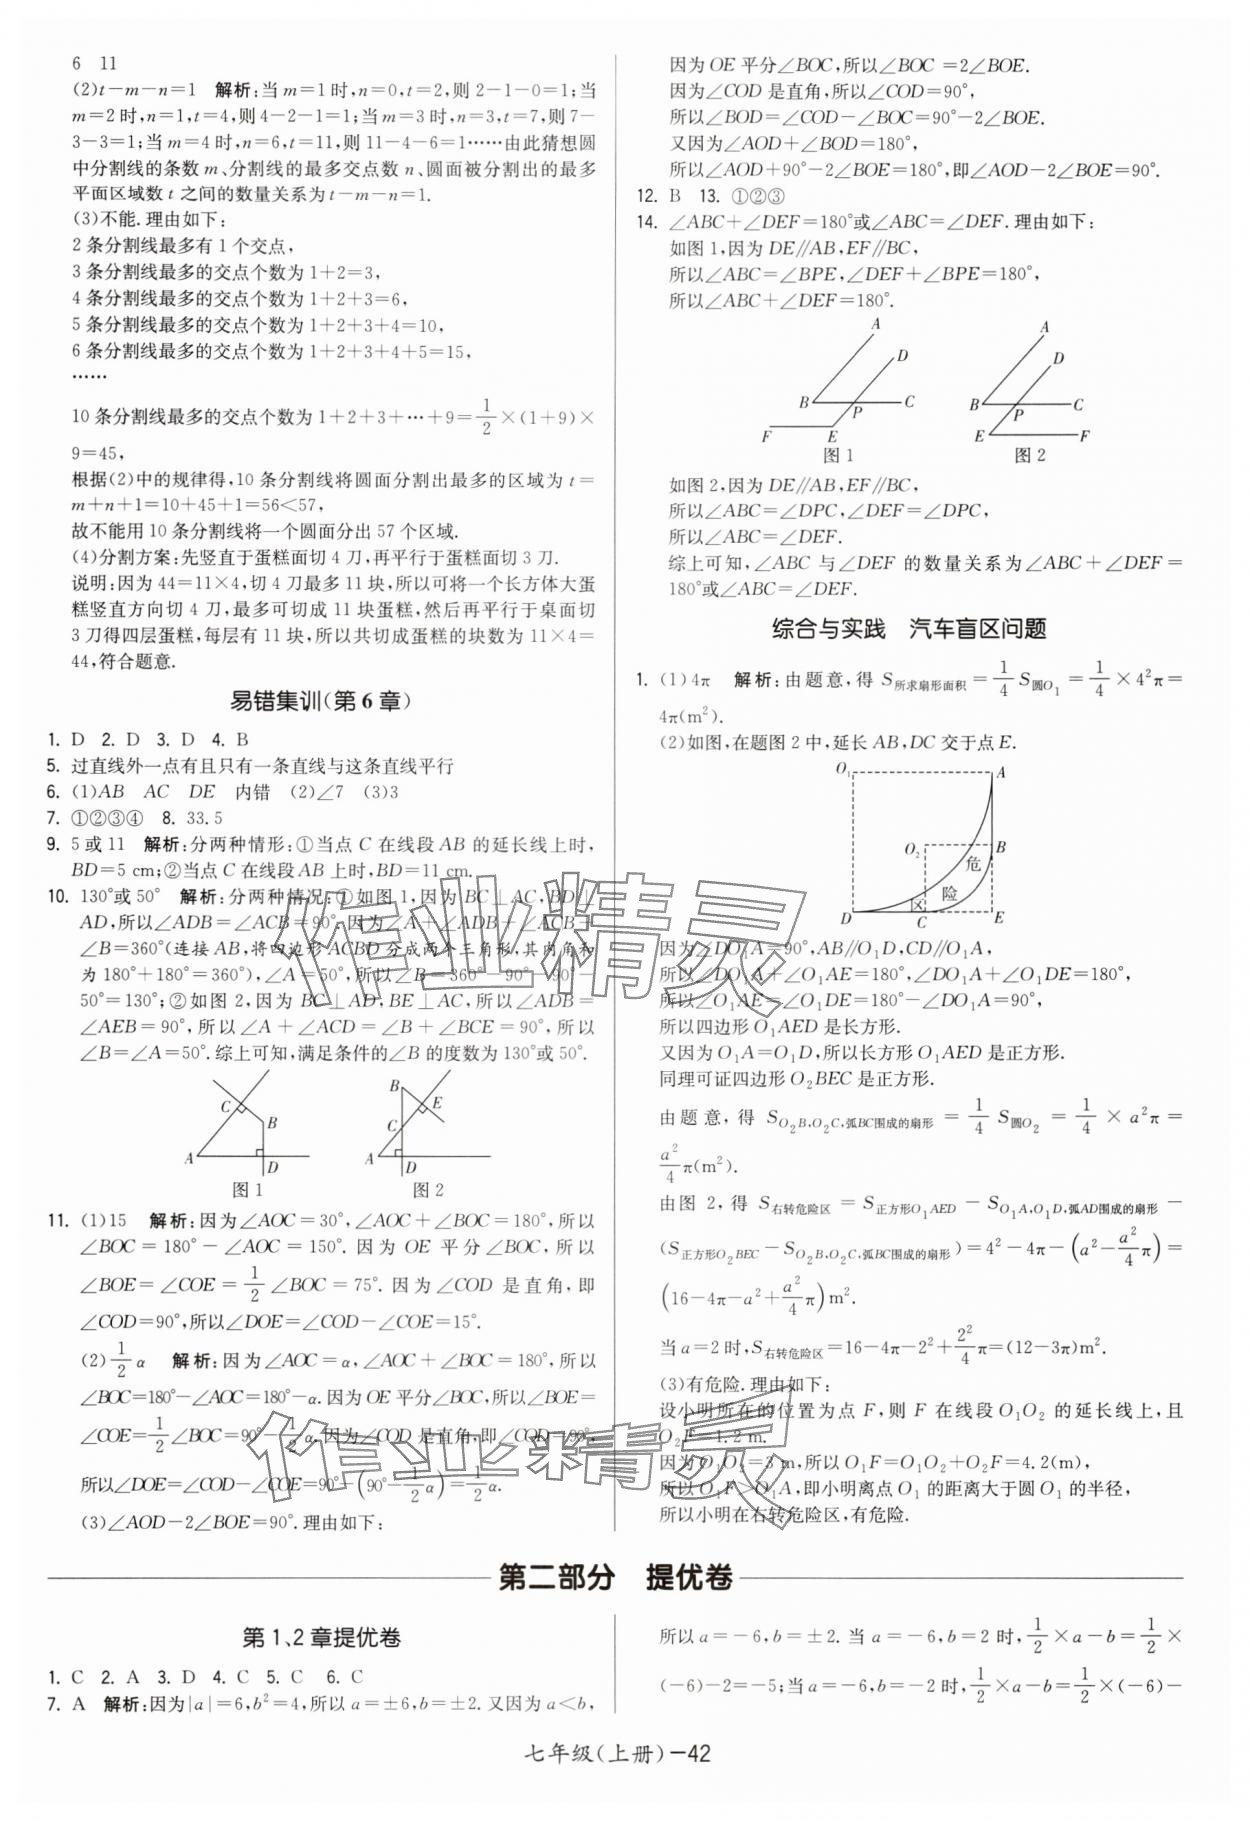 6　11
(2)t－m－n=1　解析:当m=1时,n=0,t=2,则2－1－0=1;当
m=2时,n=1,t=4,则4－2－1=1;当m=3时,n=3,t=7,则7－
3－3=1;当m=4时,n=6,t=11,则11－4－6=1……由此猜想圆
中分割线的条数m、分割线的最多交点数n、圆面被分割出的最多
平面区域数t之间的数量关系为t－m－n=1.
(3)不能.理由如下:
2条分割线最多有1个交点,
3条分割线最多的交点个数为1+2=3,
4条分割线最多的交点个数为1+2+3=6,
5条分割线最多的交点个数为1+2+3+4=10,
6条分割线最多的交点个数为1+2+3+4+5=15,
……
10条分割线最多的交点个数为1+2+3+…+9=1/2×(1+9)×
9=45,
根据(2)中的规律得,10条分割线将圆面分割出最多的区域为t=
m+n+1=10+45+1=56<57,
故不能用10条分割线将一个圆面分出57个区域.
(4)分割方案:先竖直于蛋糕面切4刀,再平行于蛋糕面切3刀.
说明:因为44=11×4,切4刀最多11块,所以可将一个长方体大蛋
糕竖直方向切4刀,最多可切成11块蛋糕,然后再平行于桌面切
3刀得四层蛋糕,每层有11块,所以共切成蛋糕的块数为11×4=
44,符合题意.
易错集训(第6章)
1. D　2. D　3. D　4. B
5. 过直线外一点有且只有一条直线与这条直线平行
6. (1)AB　AC　DE　内错　(2)∠7　(3)3
7. ①②③④　8. 33.5
9. 5或11　解析:分两种情形:①当点C在线段AB的延长线上时,
BD=5 cm;②当点C在线段AB上时,BD=11 cm.
10. 130°或50°　解析:分两种情况:①如图1,因为BC⊥AC,BD⊥
AD,所以∠ADB=∠ACB=90°.因为∠A+∠ADB+∠ACB+
∠B=360°(连接AB,将四边形ACBD分成两个三角形,其内角和
为180°+180°=360°),∠A=50°,所以∠B=360°－90°－90°－
50°=130°;②如图2,因为BC⊥AD,BE⊥AC,所以∠ADB=
∠AEB=90°,所以∠A+∠ACD=∠B+∠BCE=90°,所以
∠B=∠A=50°.综上可知,满足条件的∠B的度数为130°或50°.
C　B　A　D
图1
B　E　C　A　D
图2
11. (1)15　解析:因为∠AOC=30°,∠AOC+∠BOC=180°,所以
∠BOC=180°－∠AOC=150°.因为OE平分∠BOC,所以
∠BOE=∠COE=1/2∠BOC=75°.因为∠COD是直角,即
∠COD=90°,所以∠DOE=∠COD－∠COE=15°.
(2)1/2α　解析:因为∠AOC=α,∠AOC+∠BOC=180°,所以
∠BOC=180°－∠AOC=180°－α.因为OE平分∠BOC,所以∠BOE=
∠COE=1/2∠BOC=90°－1/2α.因为∠COD是直角,即∠COD=90°,
所以∠DOE=∠COD－∠COE=90°－(90°－1/2α)=1/2α.
(3)∠AOD－2∠BOE=90°.理由如下:
因为OE平分∠BOC,所以∠BOC=2∠BOE.
因为∠COD是直角,所以∠COD=90°,
所以∠BOD=∠COD－∠BOC=90°－2∠BOE.
又因为∠AOD+∠BOD=180°,
所以∠AOD+90°－2∠BOE=180°,即∠AOD－2∠BOE=90°.
12. B　13. ①②③
14. ∠ABC+∠DEF=180°或∠ABC=∠DEF.理由如下:
如图1,因为DE∥AB,EF∥BC,
所以∠ABC=∠BPE,∠DEF+∠BPE=180°,
所以∠ABC+∠DEF=180°.
A　D　B　P　C　F　E
图1
A　D　B　P　C　E　F
图2
如图2,因为DE∥AB,EF∥BC,
所以∠ABC=∠DPC,∠DEF=∠DPC,
所以∠ABC=∠DEF.
综上可知,∠ABC与∠DEF的数量关系为∠ABC+∠DEF=
180°或∠ABC=∠DEF.
综合与实践　汽车盲区问题
1. (1)4π　解析:由题意,得S所求扇形面积=1/4S圆O₁=1/4×4²π=
4π(m²).
(2)如图,在题图2中,延长AB,DC交于点E.
O₁　A　O₂　B　危　险　区　D　C　E
因为∠DO₁A=90°,AB∥O₁D,CD∥O₁A,
所以∠DO₁A+∠O₁AE=180°,∠DO₁A+∠O₁DE=180°,
所以∠O₁AE=∠O₁DE=180°－∠DO₁A=90°,
所以四边形O₁AED是长方形.
又因为O₁A=O₁D,所以长方形O₁AED是正方形.
同理可证四边形O₂BEC是正方形.
由题意,得S O₂B,O₂C,弧BC围成的扇形=1/4S圆O₂=1/4×a²π=
a²/4π(m²).
由图2,得S右转危险区=S正方形O₁AED－S O₁A,O₁D,弧AD围成的扇形－
(S正方形O₂BEC－S O₂B,O₂C,弧BC围成的扇形)=4²－4π－(a²－a²/4π)=
(16－4π－a²+a²/4π)m².
当a=2时,S右转危险区=16－4π－2²+2²/4π=(12－3π)m².
(3)有危险.理由如下:
设小明所在的位置为点F,则F在线段O₁O₂的延长线上,且
O₂F=1.2 m.
因为O₁O₂=3 m,所以O₁F=O₁O₂+O₂F=4.2(m),
所以O₁F>O₁A,即小明离点O₁的距离大于圆O₁的半径,
所以小明在右转危险区,有危险.
第二部分　提优卷
第1、2章提优卷
1. C　2. A　3. D　4. C　5. C　6. C
7. A　解析:因为|a|=6,b²=4,所以a=±6,b=±2.又因为a<b,
所以a=－6,b=±2.当a=－6,b=2时,1/2×a－b=1/2×
(－6)－2=－5;当a=－6,b=－2时,1/2×a－b=1/2×(－6)－
七年级(上册)－42
作业精灵
作业精灵